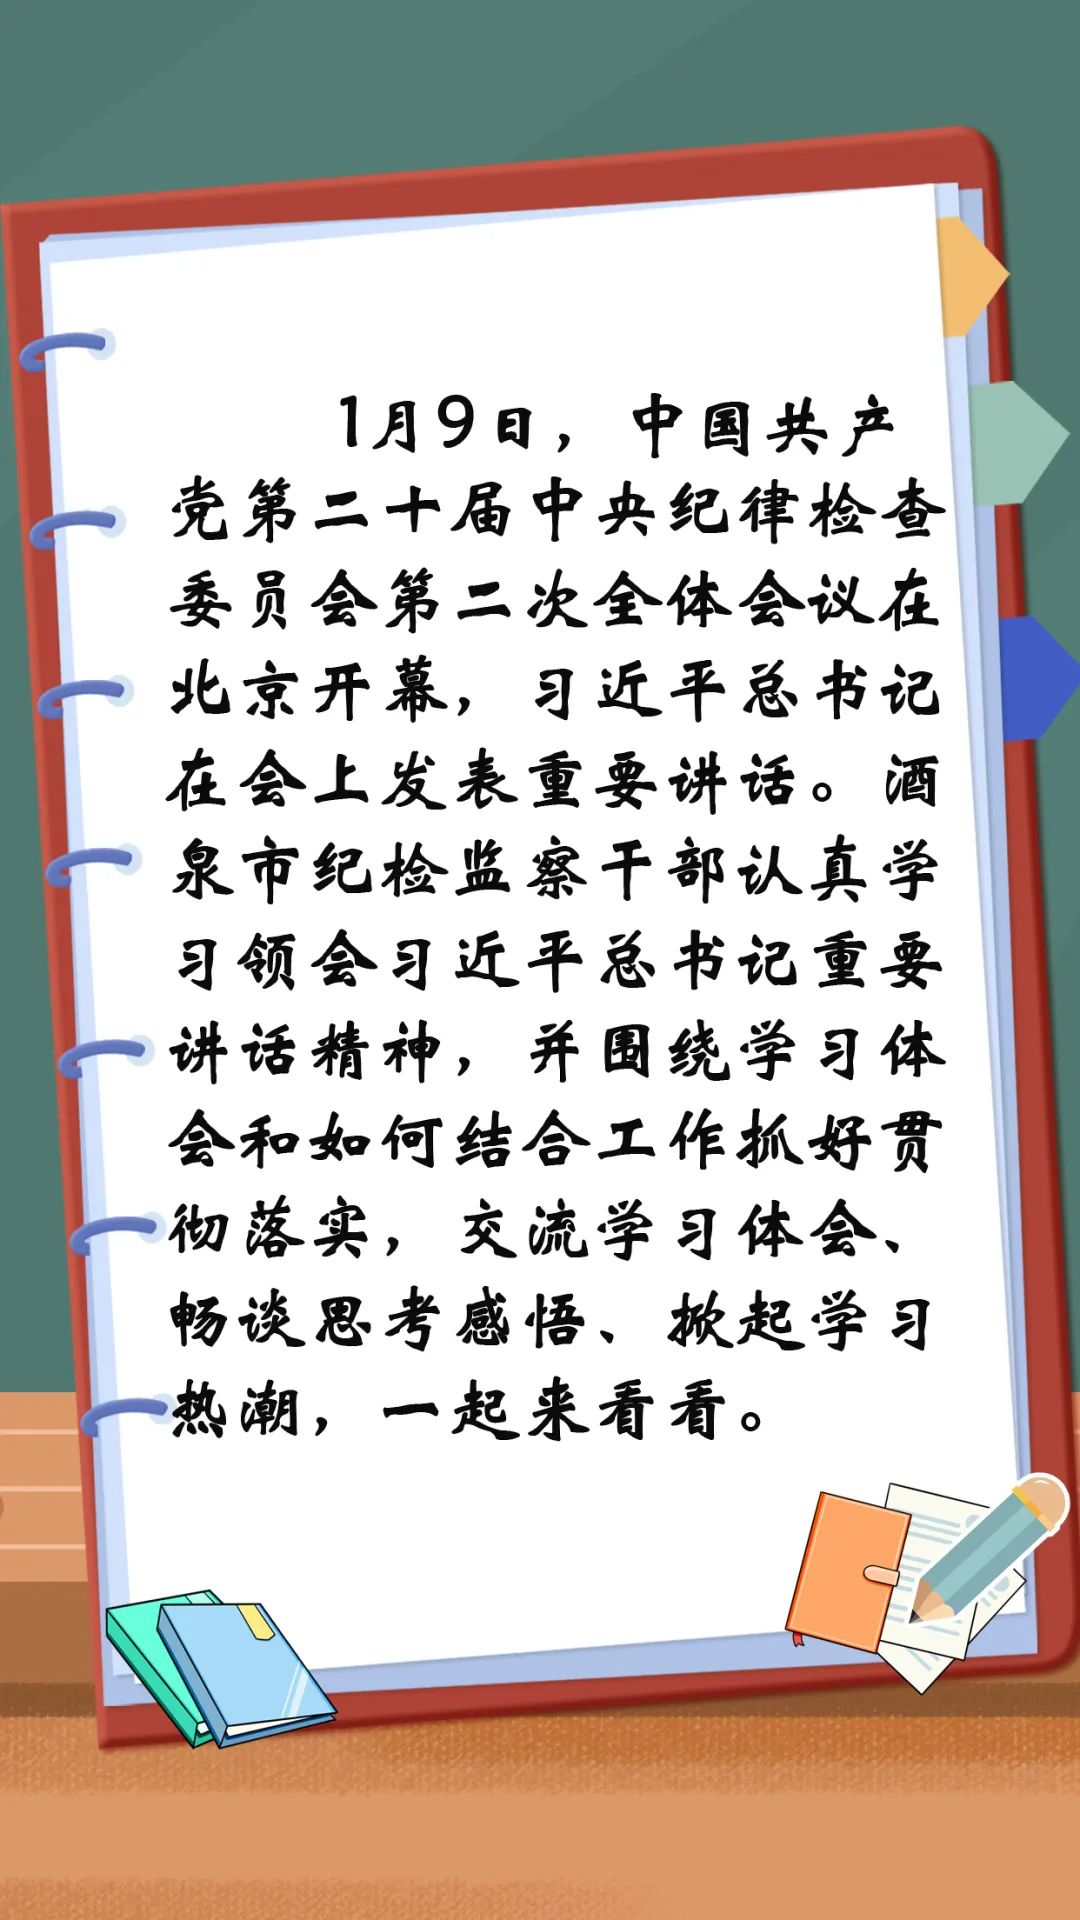 1月9日，中国共产
党第二十届中央纪律检查
委员会第二次全体会议在
北京开幕，习近平总书记
在会上发表重要讲话。酒
泉市纪检监察干部认真学
习领会习近平总书记重要
讲话精神，并围绕学习体
会和如何结合工作抓好贯
彻落实，交流学习体会、
畅谈思考感悟、掀起学习
热潮，一起来看看。